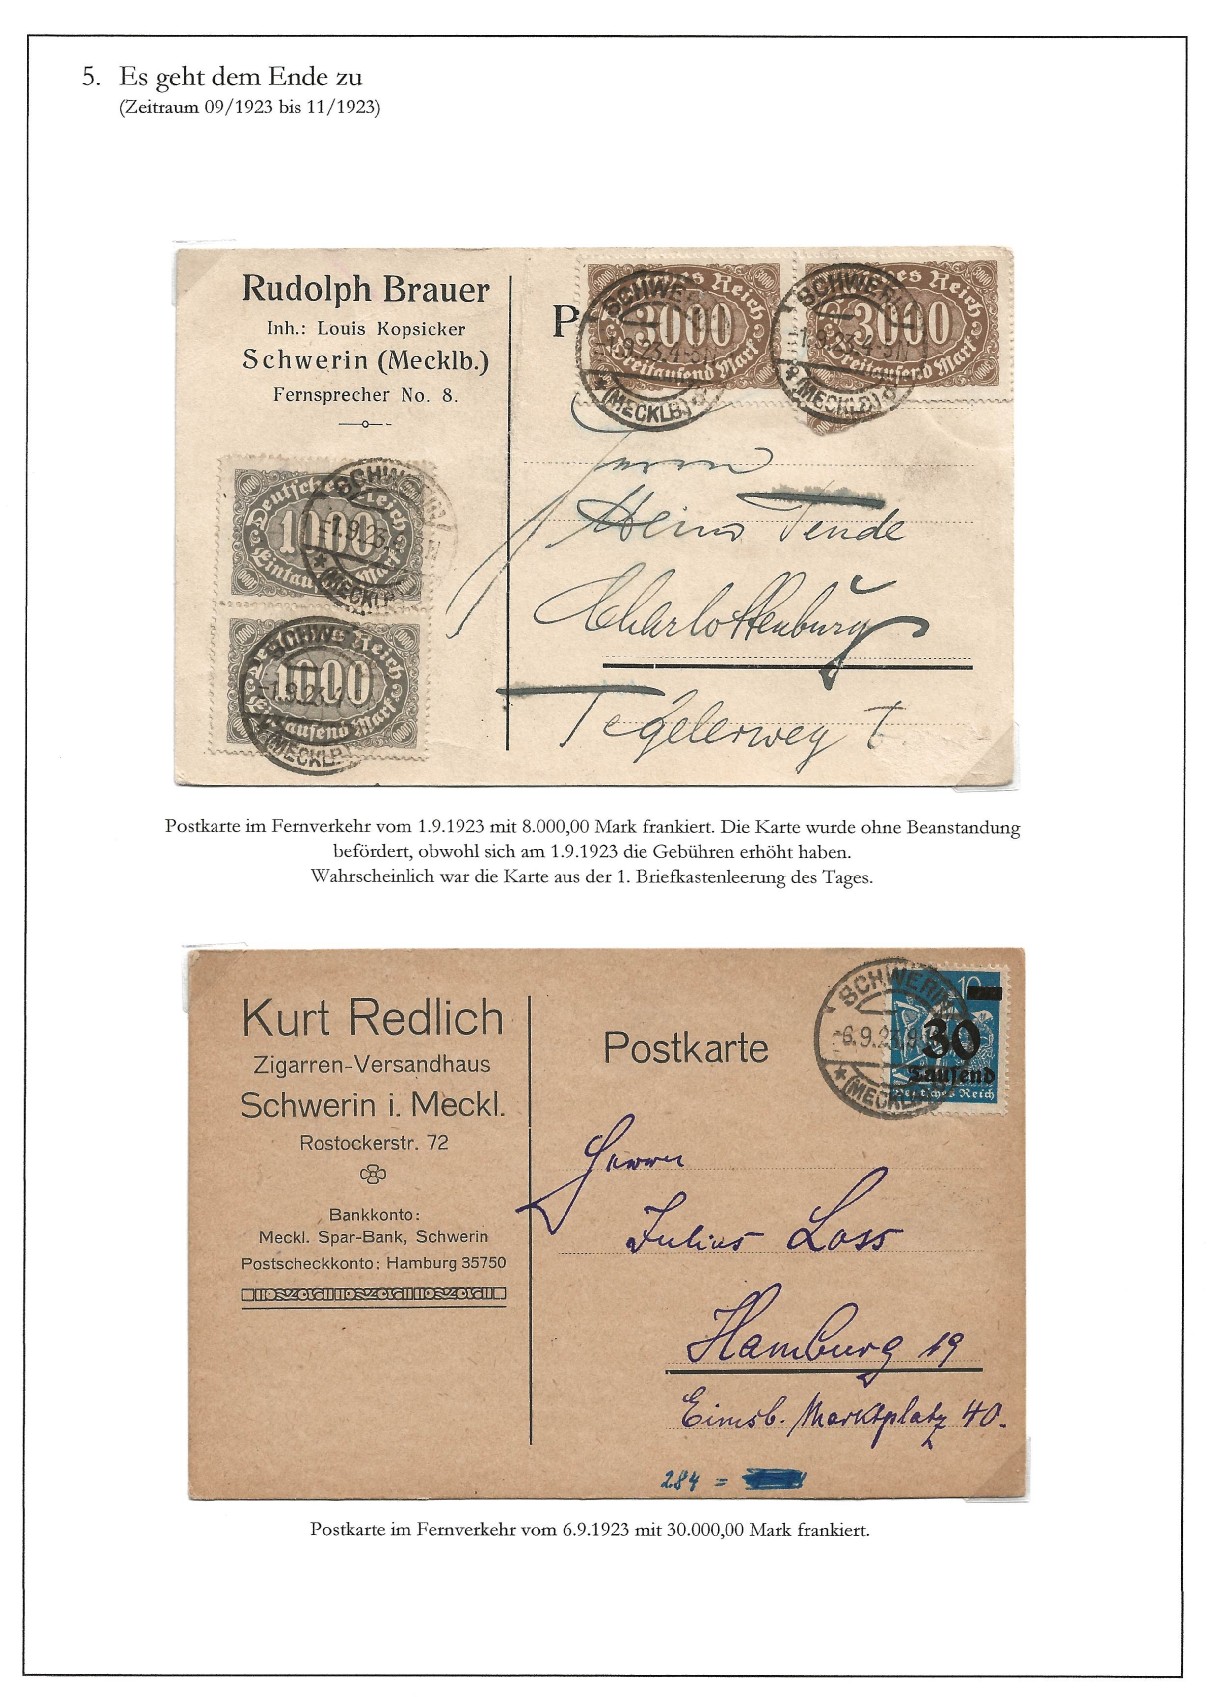 5. Es geht dem Ende zu
(Zeitraum 09/1923 bis 11/1923)
Rudolph Brauer
Inh.: Louis Kopsicker
Schwerin (Mecklb.)
Fernsprecher No. 8.
P
Deutsches Reich
3000
Dreitausend Mark
SCHWERIN
-1.9.23.4-5N
(MECKLB)
Deutsches Reich
3000
Dreitausend Mark
SCHWERIN
-1.9.23.4-5N
(MECKLB)
Deutsches Reich
1000
Eintausend Mark
SCHWERIN
-1.9.23
(MECKLB)
Deutsches Reich
1000
Eintausend Mark
SCHWERIN
-1.9.23.4
(MECKLB)
Herrn
Heinr Tende
Charlottenburg
Tegelerweg
Postkarte im Fernverkehr vom 1.9.1923 mit 8.000,00 Mark frankiert. Die Karte wurde ohne Beanstandung
befördert, obwohl sich am 1.9.1923 die Gebühren erhöht haben.
Wahrscheinlich war die Karte aus der 1. Briefkastenleerung des Tages.
Kurt Redlich
Zigarren-Versandhaus
Schwerin i. Meckl.
Rostockerstr. 72
Bankkonto:
Meckl. Spar-Bank, Schwerin
Postscheckkonto: Hamburg 35750
Postkarte
SCHWERIN
-6.9.23.9
(MECKLB)
10
30
Tausend
Deutsches Reich
Herrn
Julius Loss
Hamburg 19
Eimsb. Marktplatz 40.
284 =
Postkarte im Fernverkehr vom 6.9.1923 mit 30.000,00 Mark frankiert.